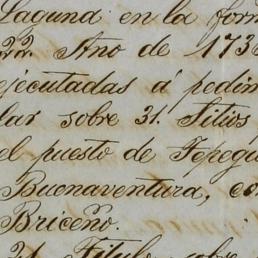 Laguna en la for
22. Año de 173
ejecutadas á pedim
lar sobre 31. Sitios
el puesto de Tepegu
Buenaventura, co
Briceño.
21 Titulo sobre